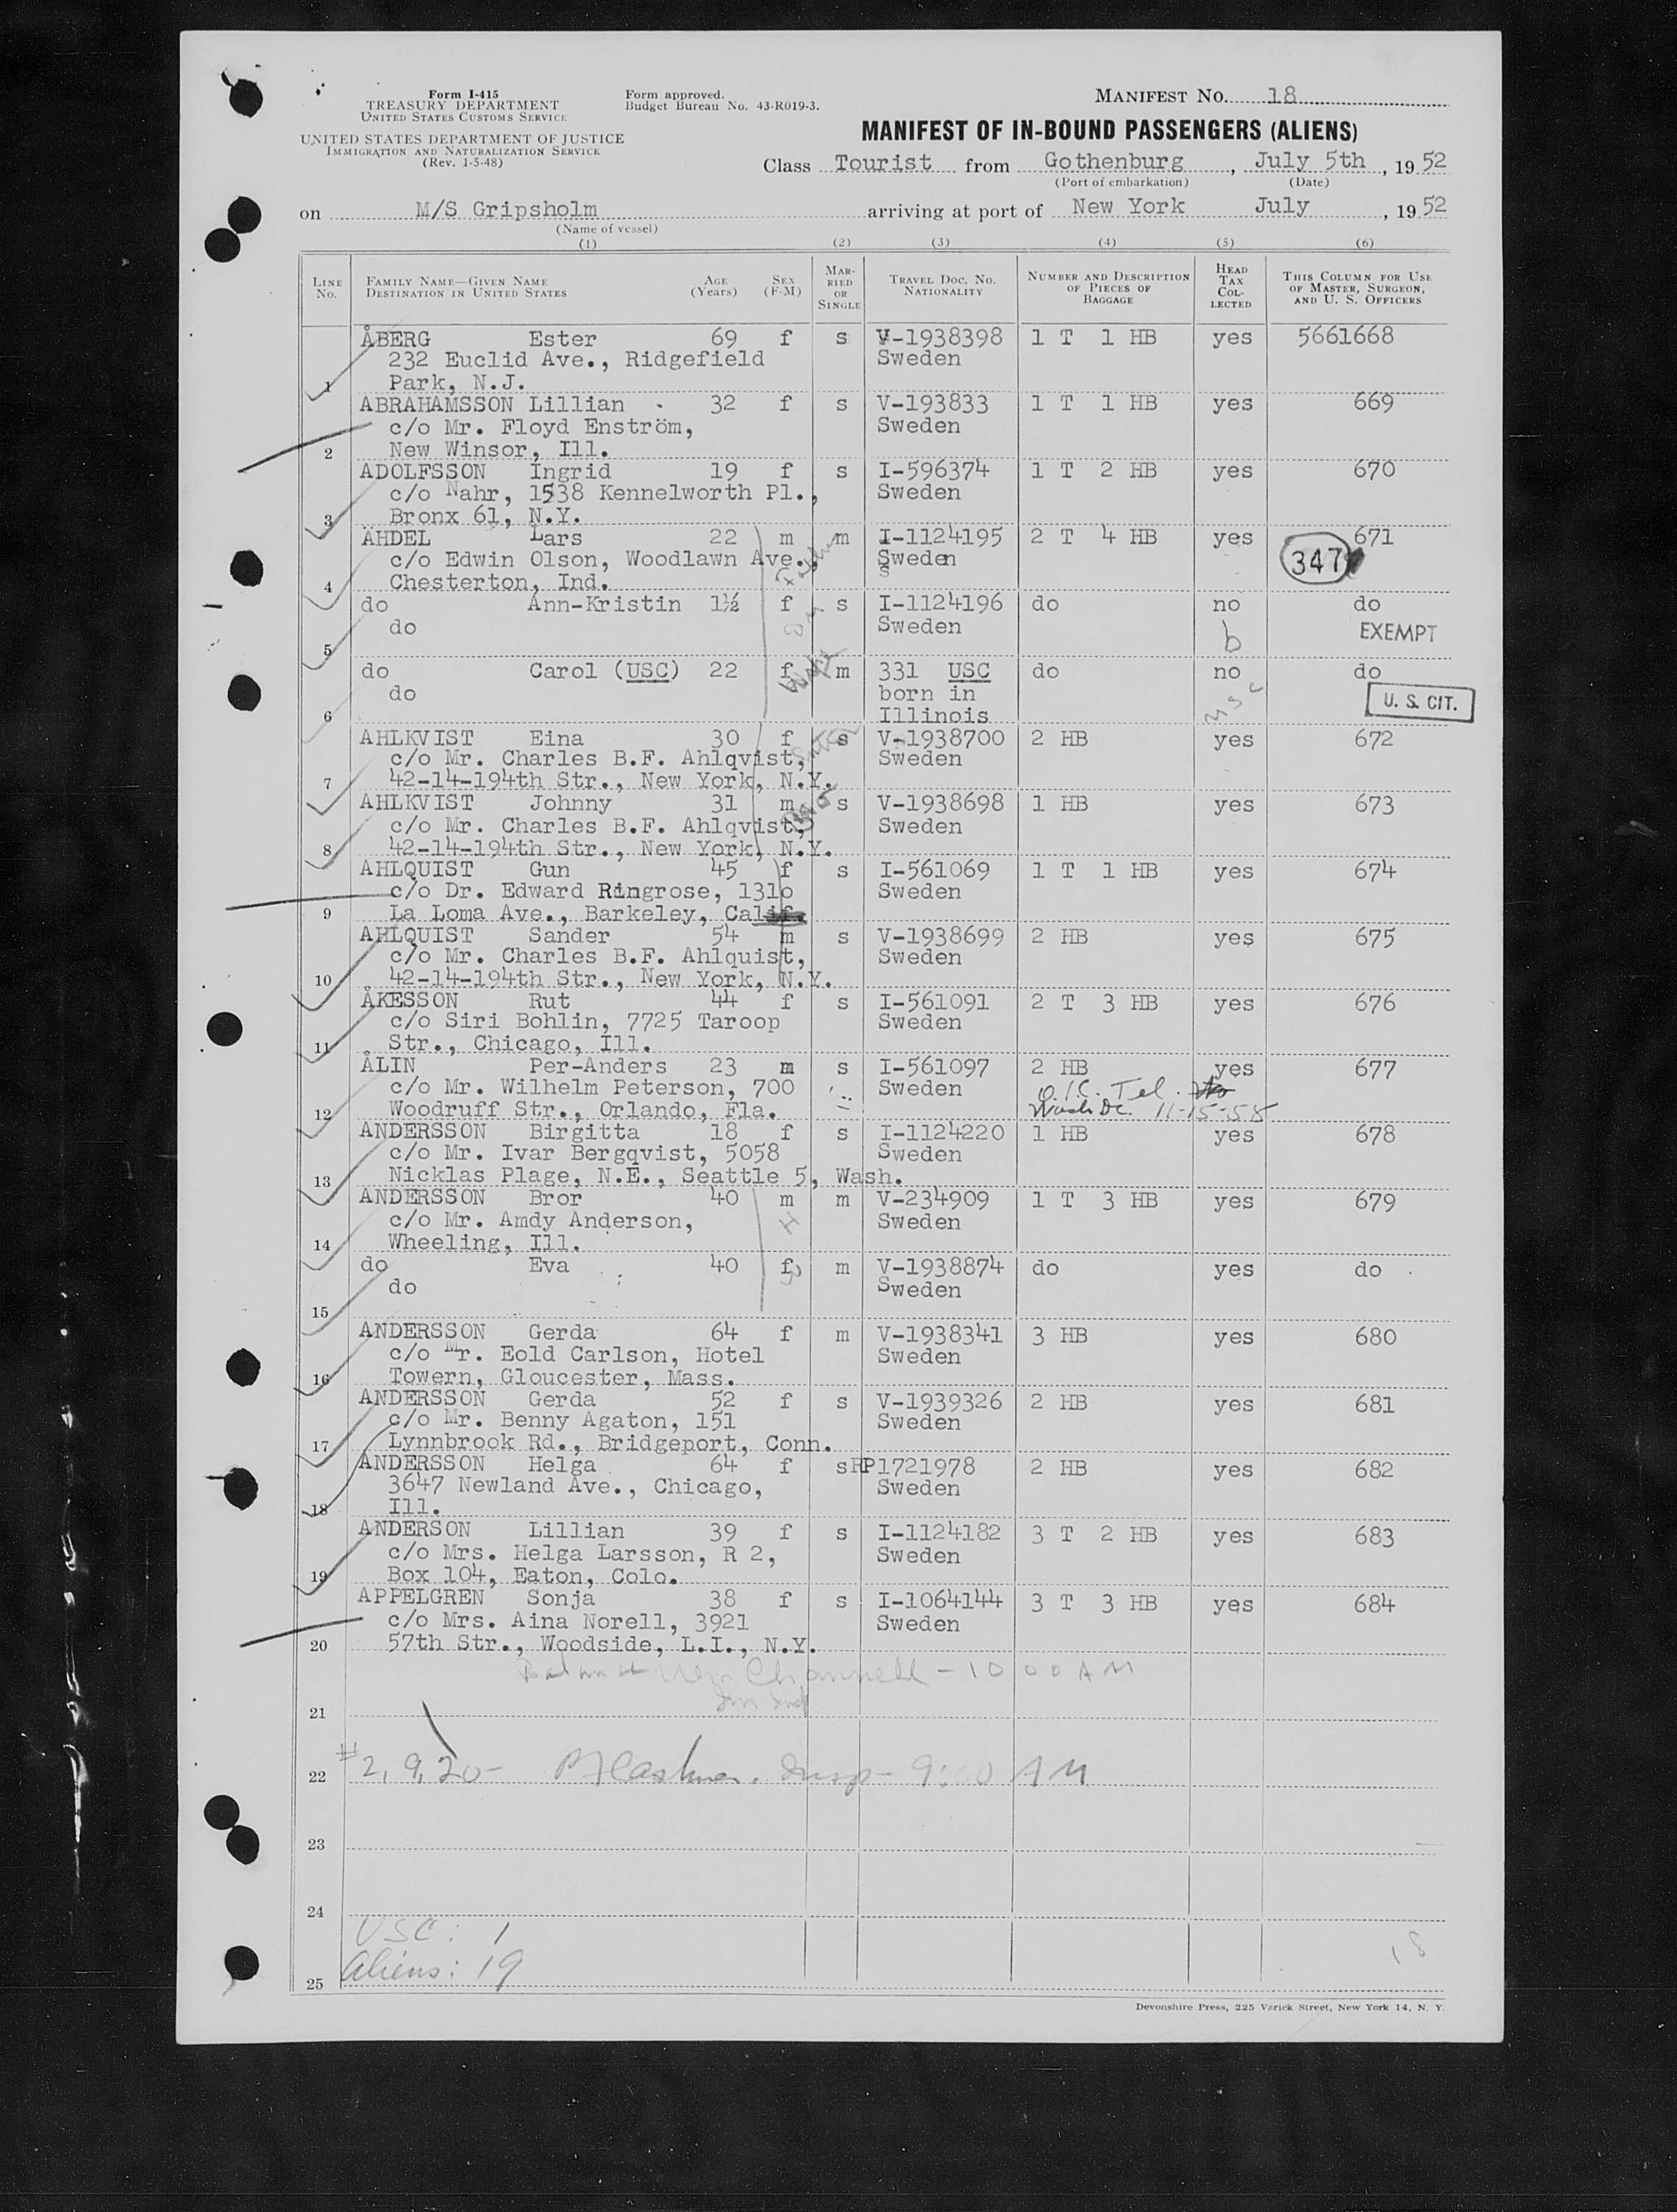 Form I-415
TREASURY DEPARTMENT
UNITED STATES CUSTOMS SERVICE
UNITED STATES DEPARTMENT OF JUSTICE
IMMIGRATION AND NATURALIZATION SERVICE
(Rev. 1-5-48)
Form approved.
Budget Bureau No. 43-R019-3.
MANIFEST NO. 18
MANIFEST OF IN-BOUND PASSENGERS (ALIENS)
Class Tourist from Gothenburg, July 5th, 19 52
(Port of embarkation) (Date)
on M/S Gripsholm arriving at port of New York July, 19 52
(Name of vessel)
(1) (2) (3) (4) (5) (6)
LINE No. FAMILY NAME—GIVEN NAME DESTINATION IN UNITED STATES AGE (Years) SEX (F-M) MARRIED OR SINGLE TRAVEL DOC. NO. NATIONALITY NUMBER AND DESCRIPTION OF PIECES OF BAGGAGE HEAD TAX COLLECTED THIS COLUMN FOR USE OF MASTER, SURGEON, AND U. S. OFFICERS
ÅBERG Ester 69 f s V-1938398 1 T 1 HB yes 5661668
232 Euclid Ave., Ridgefield Sweden
1 Park, N.J.
ABRAHAMSSON Lillian 32 f s V-193833 1 T 1 HB yes 669
c/o Mr. Floyd Enström, Sweden
2 New Winsor, Ill.
ADOLFSSON Ingrid 19 f s I-596374 1 T 2 HB yes 670
c/o Nahr, 1538 Kennelworth Pl., Sweden
3 Bronx 61, N.Y.
ÄHDEL Lars 22 m m I-1124195 2 T 4 HB yes 671
c/o Edwin Olson, Woodlawn Ave., Sweden 347
4 Chesterton, Ind.
do Ann-Kristin 1½ f s I-1124196 do no do
do Sweden b EXEMPT
5
do Carol (USC) 22 f Wife m 331 USC do no do
do born in U. S. CIT.
6 Illinois
AHLKVIST Eina 30 f s V-1938700 2 HB yes 672
c/o Mr. Charles B.F. Ahlqvist, Sweden
7 42-14-194th Str., New York, N.Y.
AHLKVIST Johnny 31 m s V-1938698 1 HB yes 673
c/o Mr. Charles B.F. Ahlqvist, Sweden
8 42-14-194th Str., New York, N.Y.
AHLQUIST Gun 45 f s I-561069 1 T 1 HB yes 674
c/o Dr. Edward Ringrose, 1310 Sweden
9 La Loma Ave., Barkeley, Calif.
AHLQUIST Sander 54 m s V-1938699 2 HB yes 675
c/o Mr. Charles B.F. Ahlquist, Sweden
10 42-14-194th Str., New York, N.Y.
ÅKESSON Rut 44 f s I-561091 2 T 3 HB yes 676
c/o Siri Bohlin, 7725 Taroop Sweden
11 Str., Chicago, Ill.
ÅLIN Per-Anders 23 m s I-561097 2 HB yes 677
c/o Mr. Wilhelm Peterson, 700 Sweden O.K. Tel.
12 Woodruff Str., Orlando, Fla. Wash DC. 11-15-58
ANDERSSON Birgitta 18 f s I-1124220 1 HB yes 678
c/o Mr. Ivar Bergqvist, 5058 Sweden
13 Nicklas Plage, N.E., Seattle 5, Wash.
ANDERSSON Bror 40 m m V-234909 1 T 3 HB yes 679
c/o Mr. Amdy Anderson, H Sweden
14 Wheeling, Ill.
do Eva 40 f m V-1938874 do yes do
do Sweden
15
ANDERSSON Gerda 64 f m V-1938341 3 HB yes 680
c/o Mr. Eold Carlson, Hotel Sweden
16 Towern, Gloucester, Mass.
ANDERSSON Gerda 52 f s V-1939326 2 HB yes 681
c/o Mr. Benny Agaton, 151 Sweden
17 Lynnbrook Rd., Bridgeport, Conn.
ANDERSSON Helga 64 f s RP1721978 2 HB yes 682
3647 Newland Ave., Chicago, Sweden
18 Ill.
ANDERSON Lillian 39 f s I-1124182 3 T 2 HB yes 683
c/o Mrs. Helga Larsson, R 2, Sweden
19 Box 104, Eaton, Colo.
APPELGREN Sonja 38 f s I-1064144 3 T 3 HB yes 684
c/o Mrs. Aina Norell, 3921 Sweden
20 57th Str., Woodside, L.I., N.Y.
10 00 AM
21
22 #2, 9, 20- Insp - 9:00 AM
23
24
USC: 1
25 Aliens: 19 18
Devonshire Press, 225 Varick Street, New York 14, N. Y.